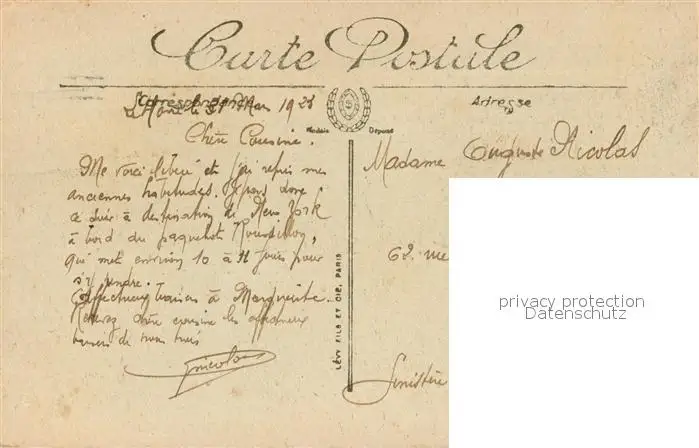 Carte Postale
Correspondance
Adresse
le 31 Mars 192
Modèle Déposé
Chère Cousine.
Me voici libéré et j'ai repris mes
anciennes habitudes. Je pars donc
ce soir à destination de New York
à bord du paquebot Roussillon,
qui met environ 10 à 11 jours pour
s'y rendre.
Affectueux baisers à Marguerite.
Recevez chère cousine les affectueux
baisers de nous trois
Nicolas
Madame Auguste Nicolas
62. rue
Finistère
LÉVY FILS ET CIE, PARIS
privacy protection
Datenschutz